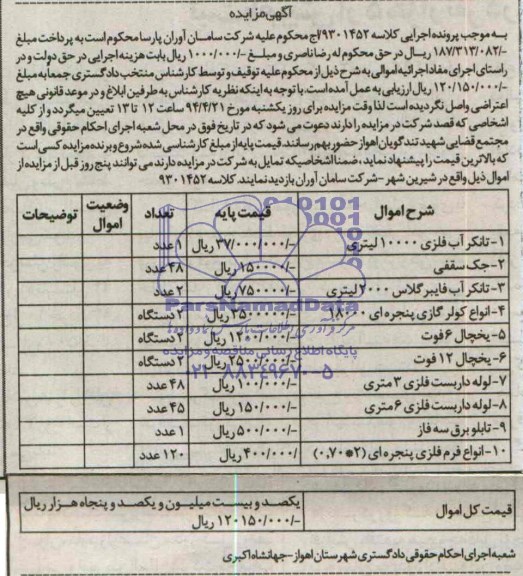 آگهی مزایده
به موجب پرونده اجرایی کلاسه ۹۳۰۱۴۵۲/اج محکوم علیه شرکت سامان آوران پارسا محکوم است به پرداخت مبلغ
۱۸۷/۳۱۳/۰۸۲/- ریال در حق محکوم له رضا ناصری و مبلغ ۱/۰۰۰/۰۰۰/- ریال بابت هزینه اجرایی در حق دولت و در
راستای اجرای مفاد اجرائیه اموالی به شرح ذیل از محکوم علیه توقیف و توسط کارشناس منتخب دادگستری جمعا به مبلغ
۱۲۰/۱۵۰/۰۰۰/- ریال ارزیابی به عمل آمده است. با توجه به اینکه نظریه کارشناس به طرفین ابلاغ و در موعد قانونی هیچ
اعتراضی واصل نگردیده است لذا وقت مزایده برای روز یکشنبه مورخ ۹۴/۴/۲۱ ساعت ۱۲ تا ۱۳ تعیین میگردد و از کلیه
اشخاصی که قصد شرکت در مزایده را دارند دعوت می شود که در تاریخ فوق در محل شعبه اجرای احکام حقوقی واقع در
مجتمع قضایی شهید تندگویان اهواز حضور بهم رسانند. قیمت پایه از مبلغ کارشناسی شده شروع و برنده مزایده کسی است
که بالاترین قیمت را پیشنهاد نماید، ضمنا اشخاصیکه تمایل به شرکت در مزایده دارند می توانند پنج روز قبل از مزایده از
اموال ذیل واقع در شیرین شهر - شرکت سامان آوران بازدید نمایند. کلاسه ۹۳۰۱۴۵۲
شرح اموال قیمت پایه تعداد وضعیت اموال توضیحات
۱- تانکر آب فلزی ۱۰۰۰۰ لیتری ۳۷/۰۰۰/۰۰۰/- ریال ۱ عدد
۲- جک سقفی ۱۵۰۰۰۰/- ریال ۴۸ عدد
۳- تانکر آب فایبرگلاس ۲۰۰۰ لیتری ریال ۲ عدد
۴- انواع کولر گازی پنجره ای ۱۸۰۰۰ ریال ۲ دستگاه
۵- یخچال ۶ فوت ریال ۲ دستگاه
۶- یخچال ۱۲ فوت ریال ۲ دستگاه
۷- لوله داربست فلزی ۳ متری ۱۰۰/۰۰۰/- ریال ۴۸ عدد
۸- لوله داربست فلزی ۶ متری ۱۵۰/۰۰۰/- ریال ۴۵ عدد
۹- تابلو برق سه فاز ۵۰۰/۰۰۰/- ریال ۱ عدد
۱۰- انواع فرم فلزی پنجره ای (۲*۰,۷۰) ۴۰۰/۰۰۰/- ریال ۱۲۰ عدد
ParsNamadData
پایگاه اطلاع رسانی مناقصه و مزایده
۰۲۱-۸۸۳۴۹۶۷۰-۵
قیمت کل اموال یکصد و بیست میلیون و یکصد و پنجاه هزار ریال
۱۲۰۱۵۰/۰۰۰/- ریال
شعبه اجرای احکام حقوقی دادگستری شهرستان اهواز - جهانشاه اکبری